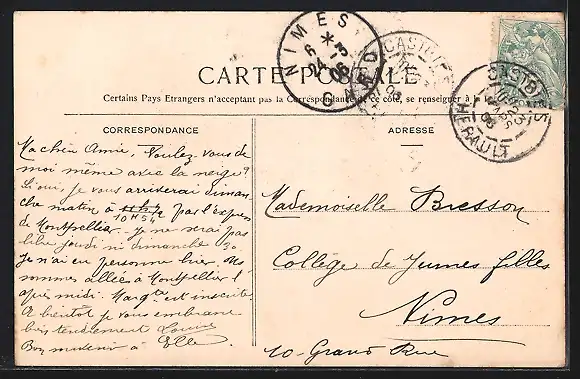 CARTE POSTALE
Certains Pays Etrangers n'acceptant pas la Correspondance de ce côté, se renseigner à la
CORRESPONDANCE
ADRESSE
Ma chère Amie, Voulez vous de
moi même avec la neige?
Si oui, je vous arriverai diman
che matin à 10H54 par l'express
de Montpellier. Je ne serai pas
libre jeudi ni dimanche 30.
Je n'ai eu personne hier. Nous
sommes allées à Montpellier l'
après midi. Marg^te est inscrite
A bientôt je vous embrasse
bien tendrement Louise
à
Mademoiselle Bresson
Collège de Jeunes filles
Nîmes
10 Grand Rue
NIMES
GARD
CASTRIES
HERAULT